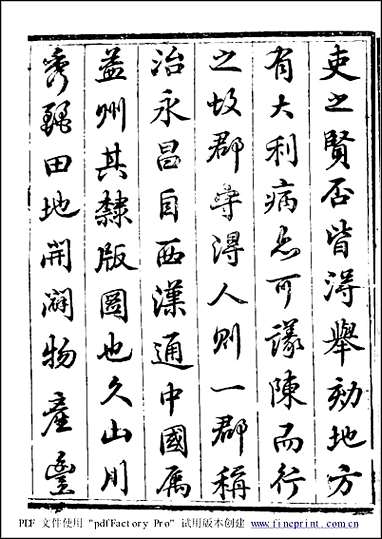 吏之賢否皆得舉劾地方
有大利病悉可議陳而行
之故郡守得人則一郡稱
治永昌自西漢通中國属
益州其隸版圖也久山川
秀麗田地開闢物產豐
PDF 文件使用 "pdfFactory Pro" 试用版本创建 www.fineprint.com.cn